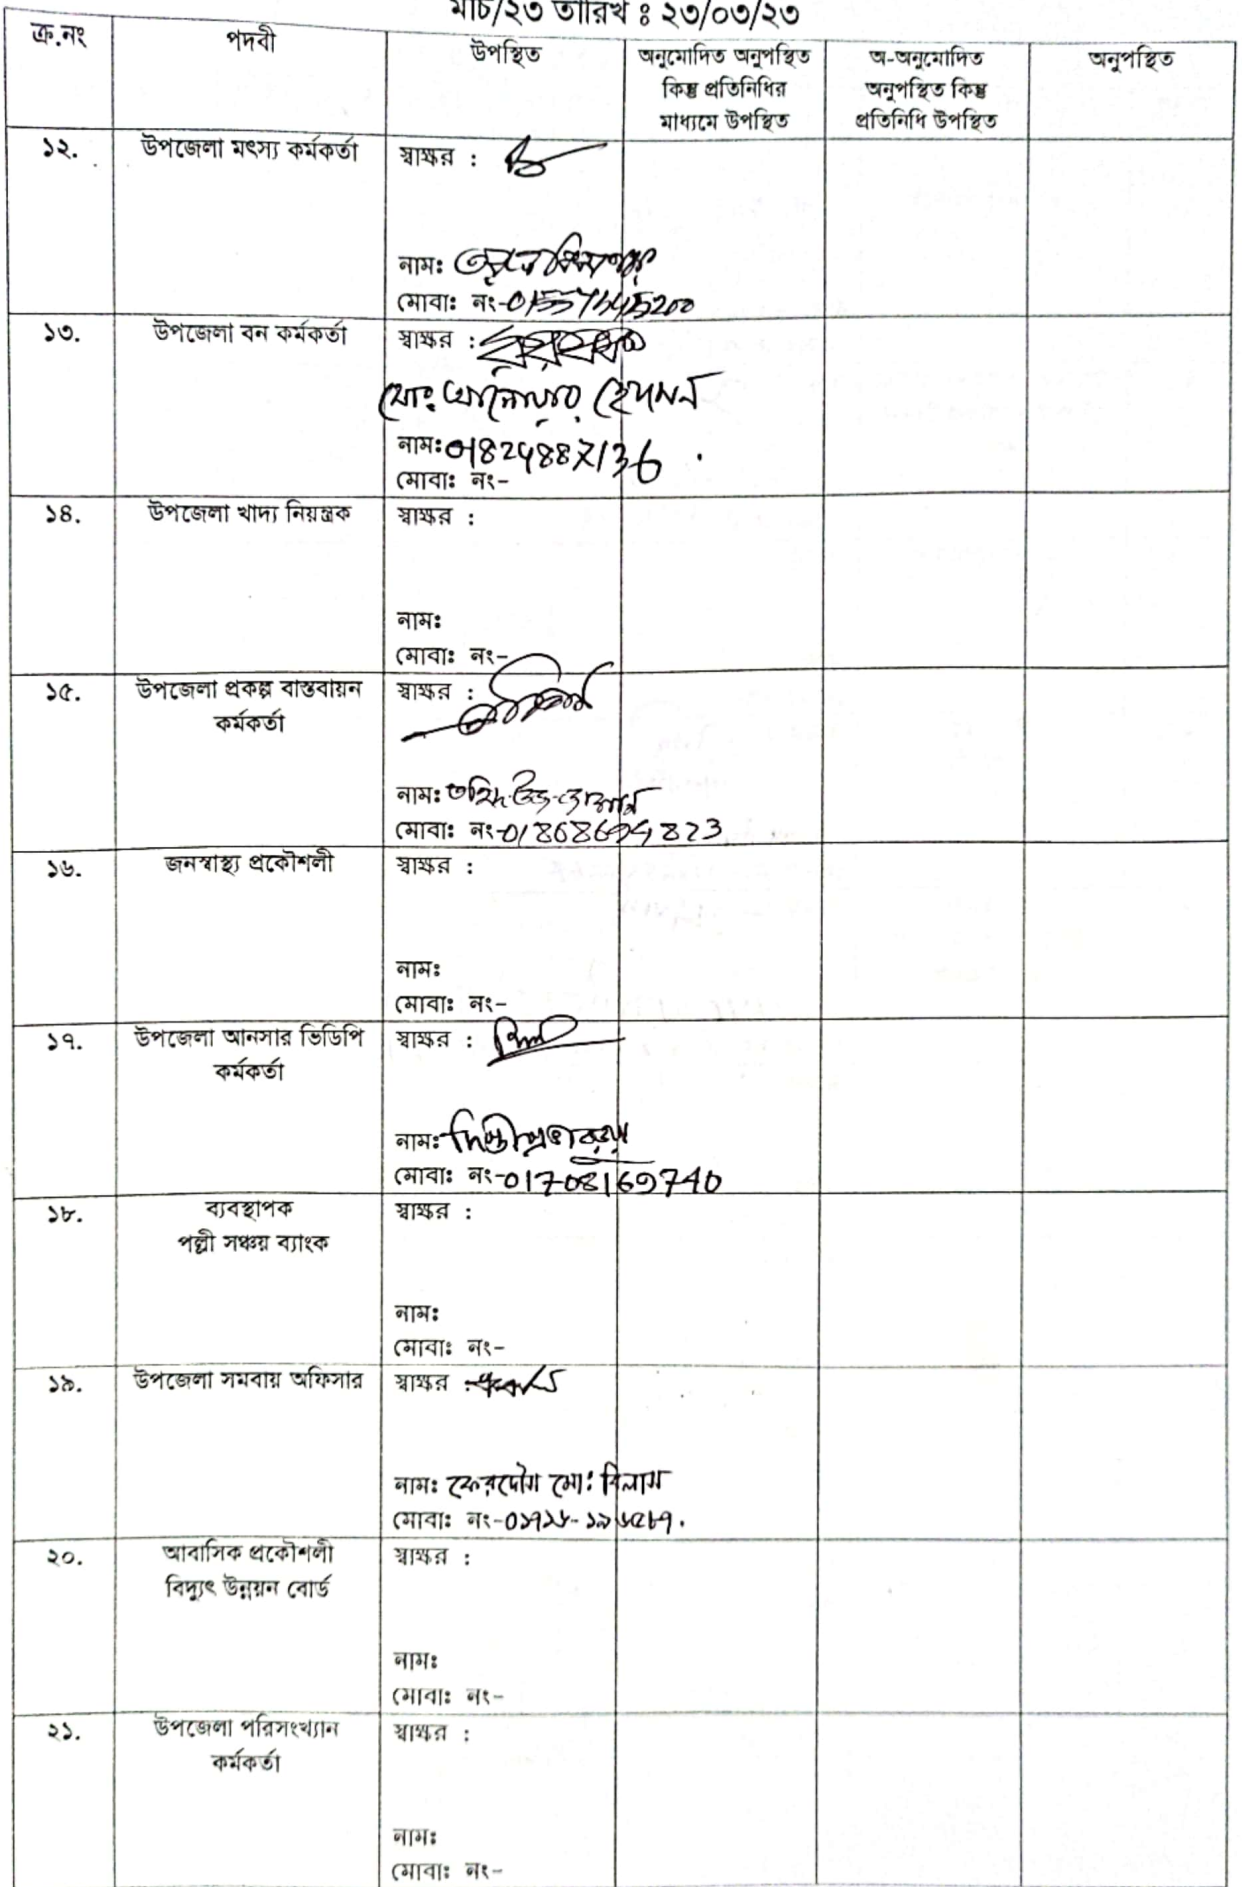 মার্চ/২৩ তারিখ ঃ ২৩/০৩/২৩
ক্র.নং পদবী উপস্থিত অনুমোদিত অনুপস্থিত কিন্তু প্রতিনিধির মাধ্যমে উপস্থিত অ-অনুমোদিত অনুপস্থিত কিন্তু প্রতিনিধি উপস্থিত অনুপস্থিত
১২. উপজেলা মৎস্য কর্মকর্তা স্বাক্ষর :
নামঃ
মোবাঃ নং-
১৩. উপজেলা বন কর্মকর্তা স্বাক্ষর :
মোঃ আনোয়ার হোসেন
নামঃ 01824887136
মোবাঃ নং-
১৪. উপজেলা খাদ্য নিয়ন্ত্রক স্বাক্ষর :
নামঃ
মোবাঃ নং-
১৫. উপজেলা প্রকল্প বাস্তবায়ন স্বাক্ষর :
কর্মকর্তা
নামঃ
মোবাঃ নং-01868694823
১৬. জনস্বাস্থ্য প্রকৌশলী স্বাক্ষর :
নামঃ
মোবাঃ নং-
১৭. উপজেলা আনসার ভিডিপি স্বাক্ষর :
কর্মকর্তা
নামঃ
মোবাঃ নং-01708169740
১৮. ব্যবস্থাপক স্বাক্ষর :
পল্লী সঞ্চয় ব্যাংক
নামঃ
মোবাঃ নং-
১৯. উপজেলা সমবায় অফিসার স্বাক্ষর :
নামঃ ফেরদৌস মোঃ বিলাস
মোবাঃ নং-
২০. আবাসিক প্রকৌশলী স্বাক্ষর :
বিদ্যুৎ উন্নয়ন বোর্ড
নামঃ
মোবাঃ নং-
২১. উপজেলা পরিসংখ্যান স্বাক্ষর :
কর্মকর্তা
নামঃ
মোবাঃ নং-